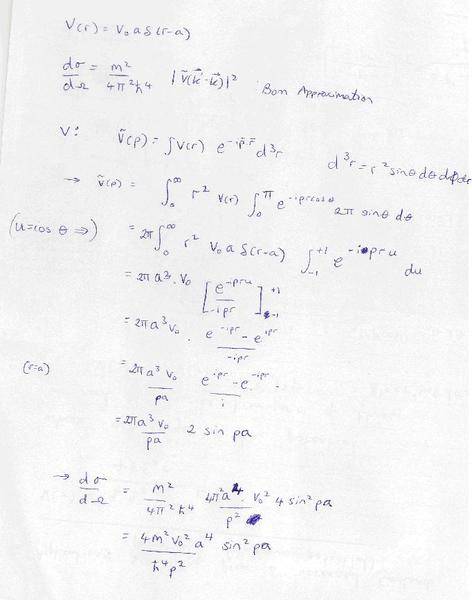 V(r) = V₀ a δ(r-a)
dσ/dΩ = m²/4π²ħ⁴ |Ṽ(k⃗'-k⃗)|² Born Approximation
V: Ṽ(p) = ∫V(r) e^{-ip̄·r̄} d³r d³r = r² sinθ dθ dφ dr
→ Ṽ(p) = ∫₀^∞ r² V(r) ∫₀^π e^{-ipr cosθ} 2π sinθ dθ
(u=cosθ ⇒) = 2π ∫₀^∞ r² V₀ a δ(r-a) ∫₋₁^{+1} e^{-ipru} du
= 2πa³ V₀ [e^{-ipru}/-ipr]₋₁^{+1}
= 2πa³ V₀ · e^{-ipr} - e^{ipr}/-ipr
(r=a) = 2πa³ V₀/pa e^{ipr} - e^{-ipr}/i
= 2πa³ V₀/pa 2 sin pa
→ dσ/dΩ = m²/4π²ħ⁴ 4π²a⁴ V₀²/p² 4 sin² pa
= 4m² V₀² a⁴/ħ⁴p² sin² pa